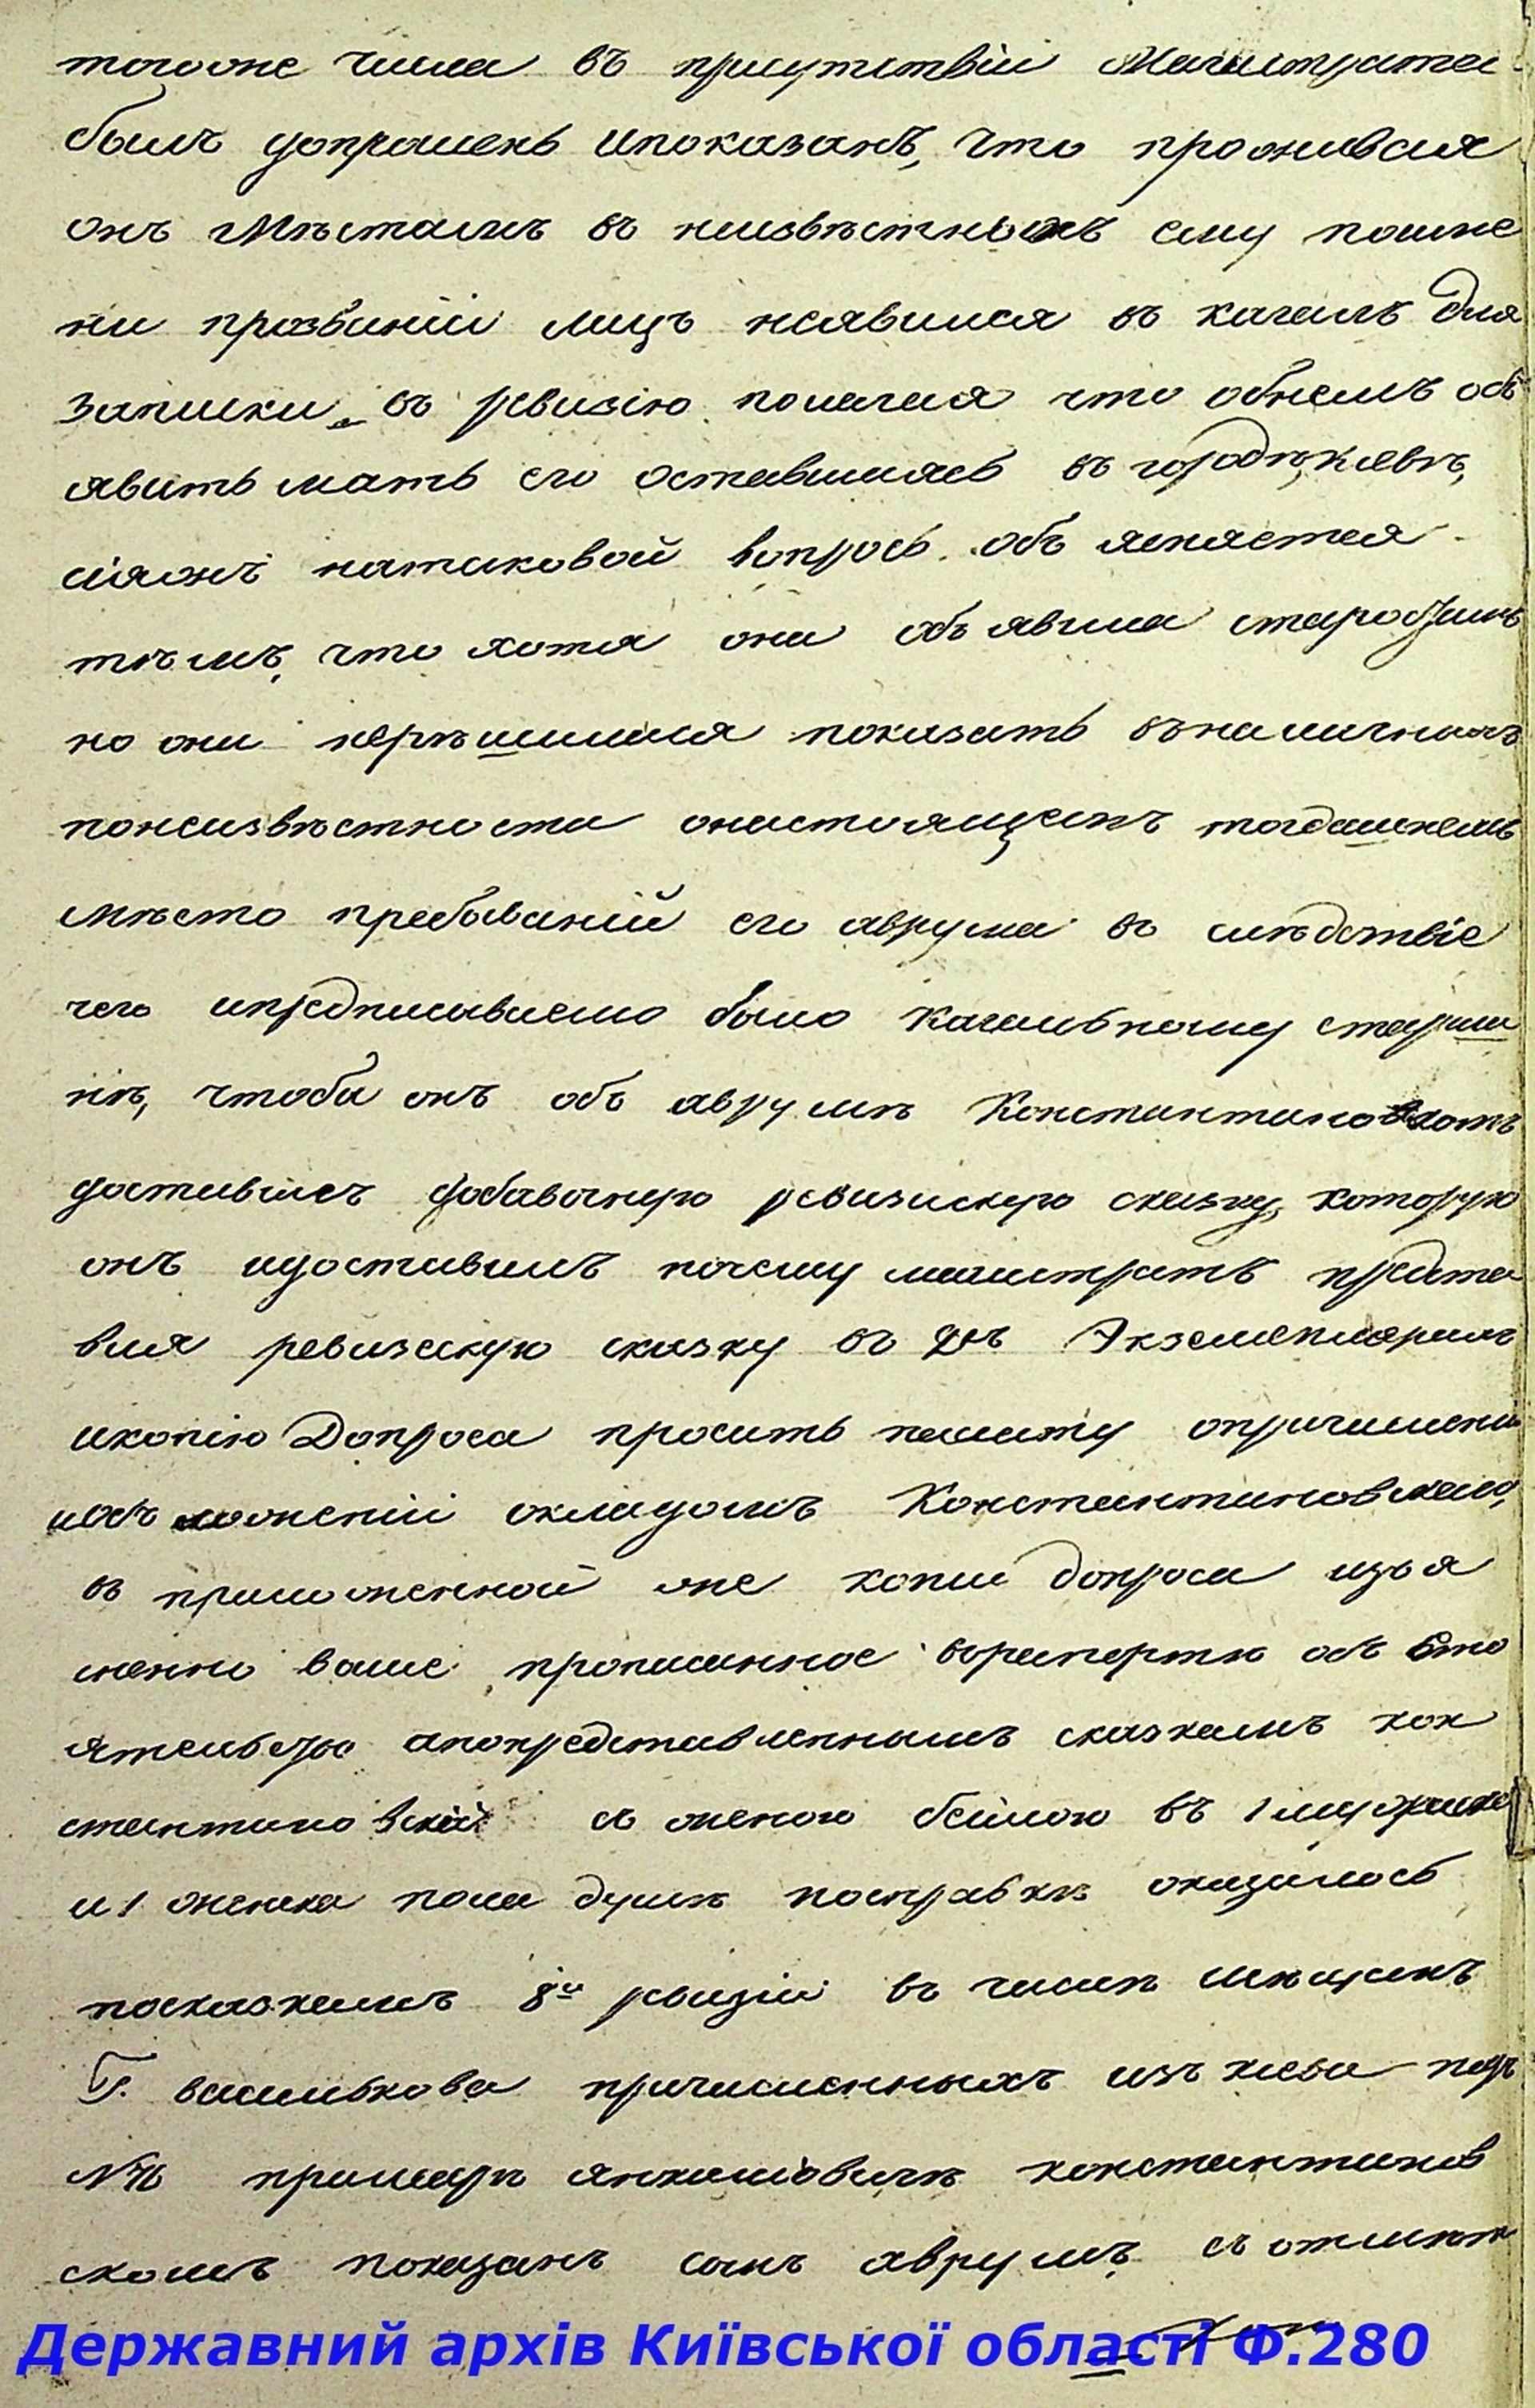 тогоже числа въ присутствіи Магистрата
былъ допрошенъ ипоказалъ, что проживая
онъ Мѣстамъ въ неизвѣстныхъ ему поиме
ни прозваній лицъ неявился въ кагалъ для
записки въ ревизію полагая что обнемъ объ
явитъ мать его оставшаясь въ городѣ Кіевѣ,
сіяжъ натаковой вопросъ объ ясняется
тѣмъ, что хотя она объ явила старо
но они нерѣшилися показать въналичныхъ
понеизвѣстности онастоящемъ тогдашнемъ
мѣсто пребываній его аврума въ слѣдствіе
чего ипредписываемо было Кагальному старши
нѣ, чтобы онъ объ аврумѣ Константиновскомъ
доставилъ добавочную ревизискую сказку, которую
онъ идоставилъ почему магистратъ предста
вляя ревизскую сказку въ 2хъ Экземплярахъ
икопію Допроса проситъ палату опричислени
иобъ ложеніи окладомъ Константиновскаго,
въ приложенной же копіи допроса изъя
снено выше прописанное врапортѣ объ Сто
ятельство апопредставленнымъ сказкамъ кон
стантиновскій съ женою бейлою въ 1 мужеска
и 1 женска пола душѣ посправкѣ оказалось
посказкамъ 8й ревизіи въ числѣ мѣщанъ
Г. василькова причисленныхъ изъ кіева подъ
№ 76 примеръ янкилевичѣ константинов
скомъ показанъ сынъ аврумъ, съ отмѣт
Державний архів Київської області Ф.280